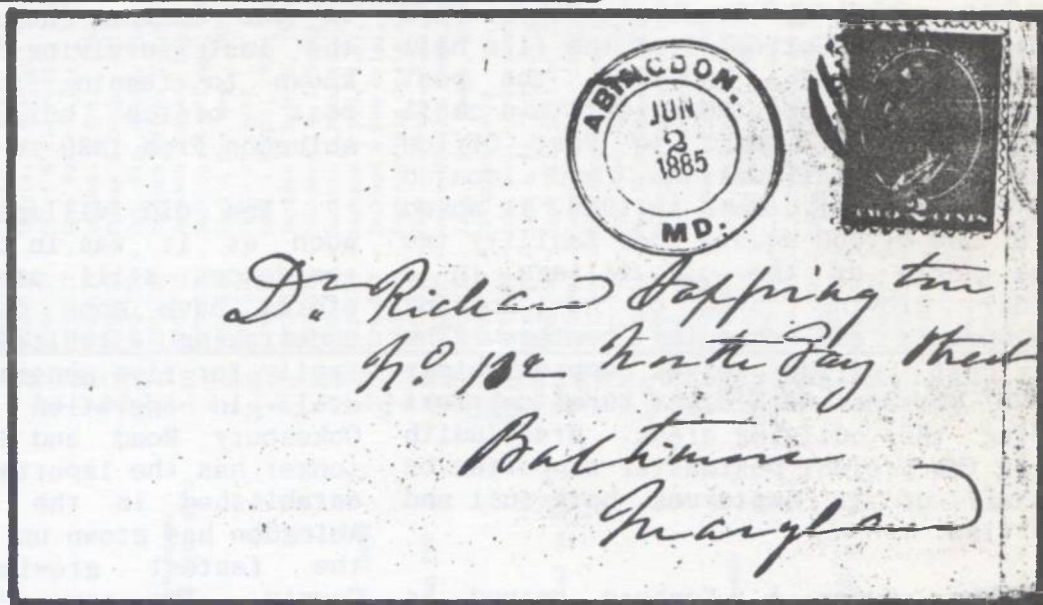 ABINGDON.
JUN
2
1885
MD.
Dr. Richard Sappington
No. 132 North Gay Street
Baltimore
Maryland